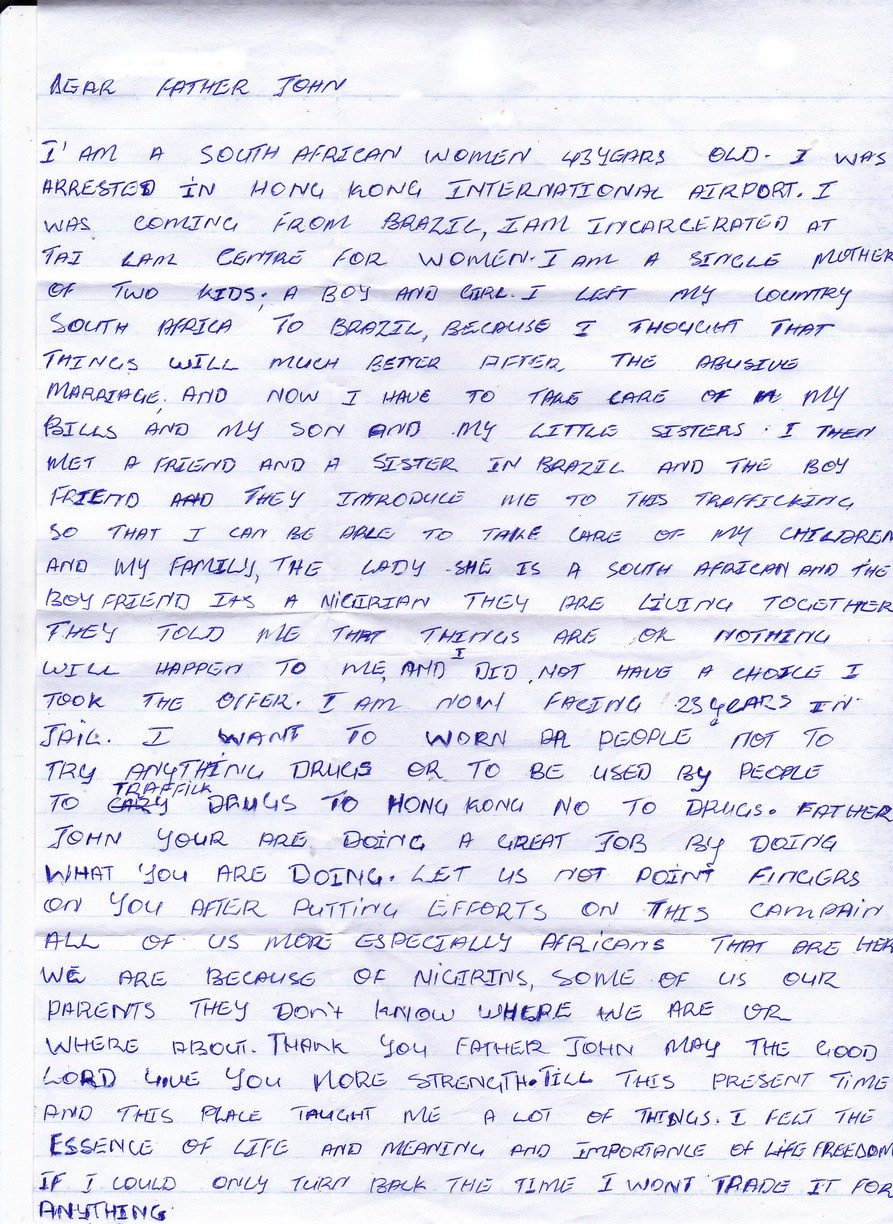 DEAR FATHER JOHN
I' AM A SOUTH AFRICAN WOMEN 43 YEARS OLD. I WAS
ARRESTED IN HONG KONG INTERNATIONAL AIRPORT. I
WAS COMING FROM BRAZIL, I AM INCARCERATED AT
TAI LAM CENTRE FOR WOMEN. I AM A SINGLE MOTHER
OF TWO KIDS; A BOY AND GIRL. I LEFT MY COUNTRY
SOUTH AFRICA TO BRAZIL, BECAUSE I THOUGHT THAT
THINGS WILL MUCH BETTER AFTER, THE ABUSIVE
MARRIAGE, AND NOW I HAVE TO TAKE CARE OF MY
BILLS AND MY SON AND MY LITTLE SISTERS. I THEN
MET A FRIEND AND A SISTER IN BRAZIL AND THE BOY
FRIEND AND THEY INTRODUCE ME TO THIS TRAFFICKING
SO THAT I CAN BE ABLE TO TAKE CARE OF MY CHILDREN
AND MY FAMILY, THE LADY SHE IS A SOUTH AFRICAN AND THE
BOYFRIEND IS A NIGIRIAN THEY ARE LIVING TOGETHER
THEY TOLD ME THAT THINGS ARE OK NOTHING
WILL HAPPEN TO ME, AND I DID NOT HAVE A CHOICE I
TOOK THE OFFER. I AM NOW FACING 23 YEARS IN
JAIL. I WANT TO WORN PEOPLE NOT TO
TRY ANYTHING DRUGS OR TO BE USED BY PEOPLE
TO TRAFFICK DRUGS TO HONG KONG NO TO DRUGS. FATHER
JOHN YOUR ARE DOING A GREAT JOB BY DOING
WHAT YOU ARE DOING. LET US NOT POINT FINGERS
ON YOU AFTER PUTTING EFFORTS ON THIS CAMPAIN
ALL OF US MORE ESPECIALLY AFRICANS THAT ARE HER
WE ARE BECAUSE OF NIGIRINS, SOME OF US OUR
PARENTS THEY DON'T KNOW WHERE WE ARE OR
WHERE ABOUT. THANK YOU FATHER JOHN MAY THE GOOD
LORD GIVE YOU MORE STRENGTH. TILL THIS PRESENT TIME
AND THIS PLACE TAUGHT ME A LOT OF THINGS. I FELT THE
ESSENCE OF LIFE AND MEANING AND IMPORTANCE OF LIFE FREEDOM
IF I COULD ONLY TURN BACK THE TIME I WONT TRADE IT FOR
ANYTHING